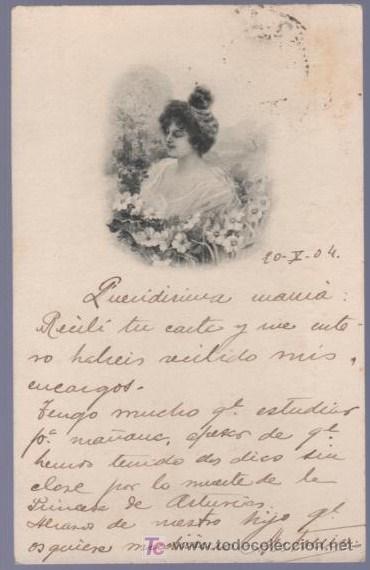 20-X-04.
Queridisima mamá:
Recibí tu carta y me ente-
ro habeis recibido mis
encargos.
Tengo mucho qe. estudiar
pa. mañana, apesar de qe.
hemos tenido dos dias sin
clase por la muerte de la
Princesa de Asturias.
Abrazos de nuestro hijo qe.
os quiere
www.todocoleccion.net